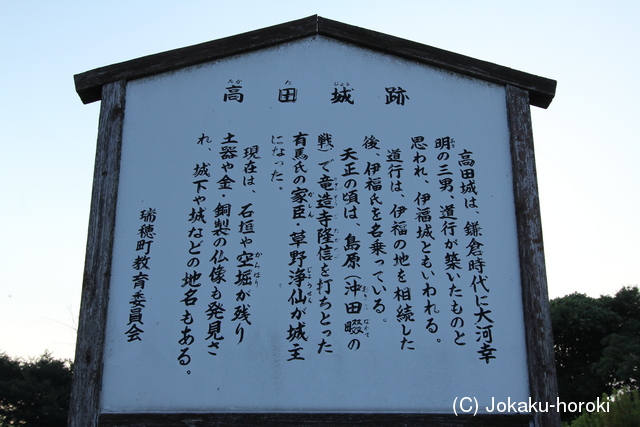 高田城跡
高田城は、鎌倉時代に大河幸
明の三男、道行が築いたものと
思われ、伊福城ともいわれる。
道行は、伊福の地を相続した
後、伊福氏を名乗っている。
天正の頃は、島原(沖田畷の
戦)で竜造寺隆信を打ちとった
有馬氏の家臣・草野浄仙が城主
になった。
現在は、石垣や空堀が残り
土器や金・銅製の仏像も発見さ
れ、城下や城などの地名もある。
瑞穂町教育委員会
(C) Jokaku-horoki